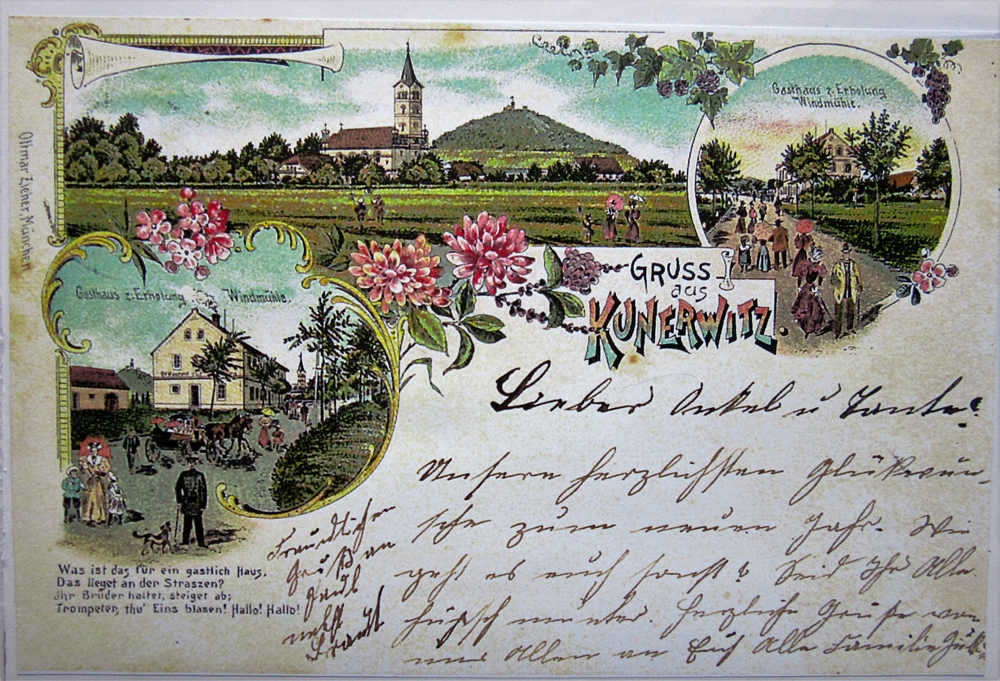 Gasthaus z. Erholung
Windmühle.
Ottmar Zieher, München
GRUSS
aus
KUNERWITZ
Gasthaus z. Erholung Windmühle.
Restaurant
Lieber Onkel u Tante!
Unsern herzlichsten Glükwün-
sche zum neuen Jahr. Wie
geht es euch sonst? Seid Ihr Alle
hübsch munter. Herzliche Grüße von
uns Allen an Euch Alle Familie
Freundlicher
Gruß an
Paul
nebst
Braut
Was ist das für ein gastlich Haus,
Das lieget an der Straszen?
Ihr Brüder haltet, steiget ab;
Trompeter, thu' Eins blasen! Hallo! Hallo!